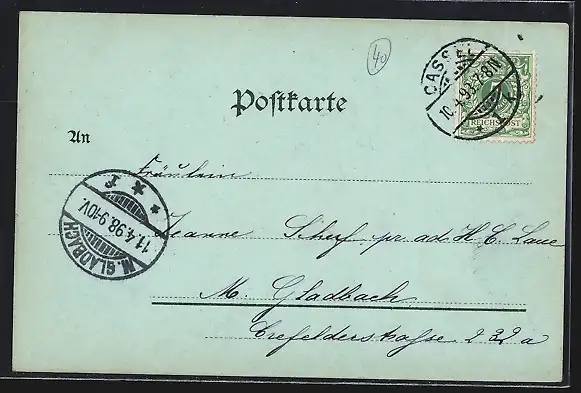 40
CASSEL
10.4.98.7-8N.
* 1 k
REICHSPOST
Postkarte
An
Fräulein
Jeanne Scherf pr. ad. H. C. Laue
M. Gladbach
Crefelderstrasse 232 a
M. GLADBACH
11.4.98.9-10V.
* * f